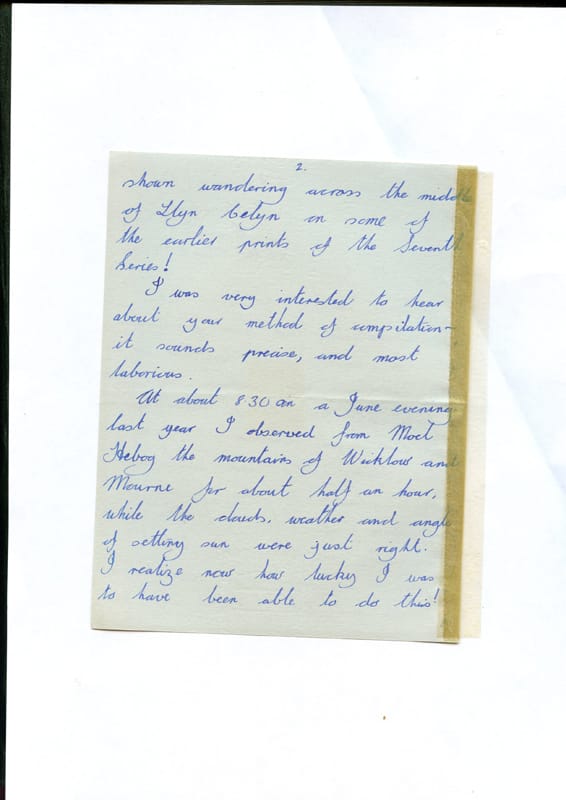 2.
shown wandering across the middle
of Llyn Celyn on some of
the earlier prints of the Seventh
Series!
I was very interested to hear
about your method of compilation—
it sounds precise, and most
laborious.
At about 8 30 on a June evening
last year I observed from Moel
Hebog the mountains of Wicklow and
Mourne for about half an hour,
while the clouds, weather and angle
of setting sun were just right.
I realize now how lucky I was
to have been able to do this!